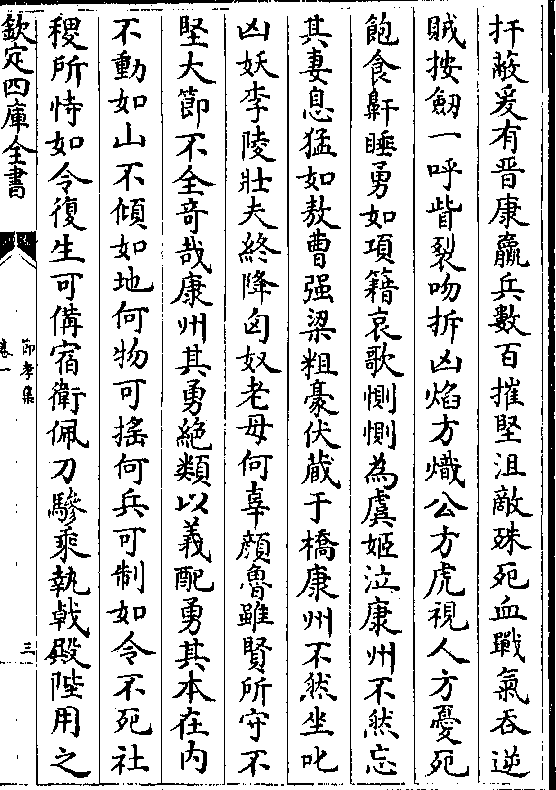 扞蔽爰有晋康羸兵數百摧堅沮敵殊死血戰氣吞逆
賊按劒一呼眥裂吻拆凶焰方熾公方虎視人方憂死
飽食鼾睡勇如項籍哀歌惻惻為虞姬泣康州不然忘
其妻息猛如敖曹强梁粗豪伏蔵于橋康州不然坐叱
凶妖李陵壯夫終降匈奴老母何辜顔魯雖賢所守不
堅大節不全竒哉康州其勇絶類以義配勇其本在内
不動如山不傾如地何物可摇何兵可制如令不死社
稷所恃如令復生可備宿衛佩刀驂乘執㦸殿陛用之
欽定四庫全書
節孝集
卷一
三